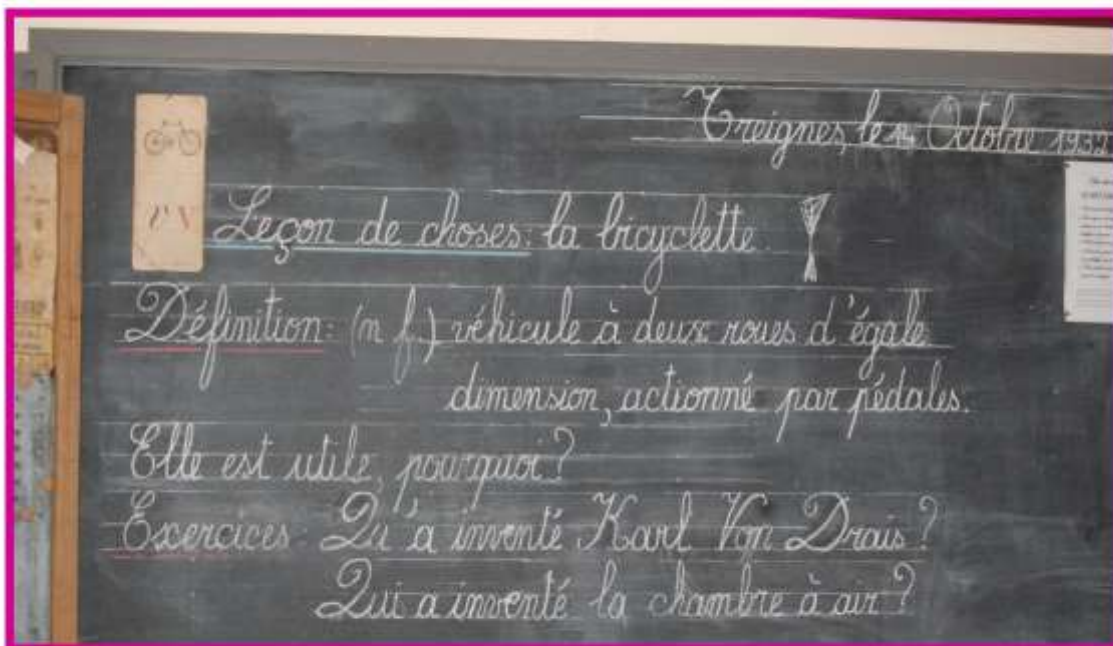 Treignes, le Octobre 1932
Leçon de choses: la bicyclette.
Définition: (n f.) véhicule à deux roues d'égale
dimension, actionné par pédales.
Elle est utile, pourquoi?
Exercices: Qu'a inventé Karl Von Drais?
Qui a inventé la chambre à air?